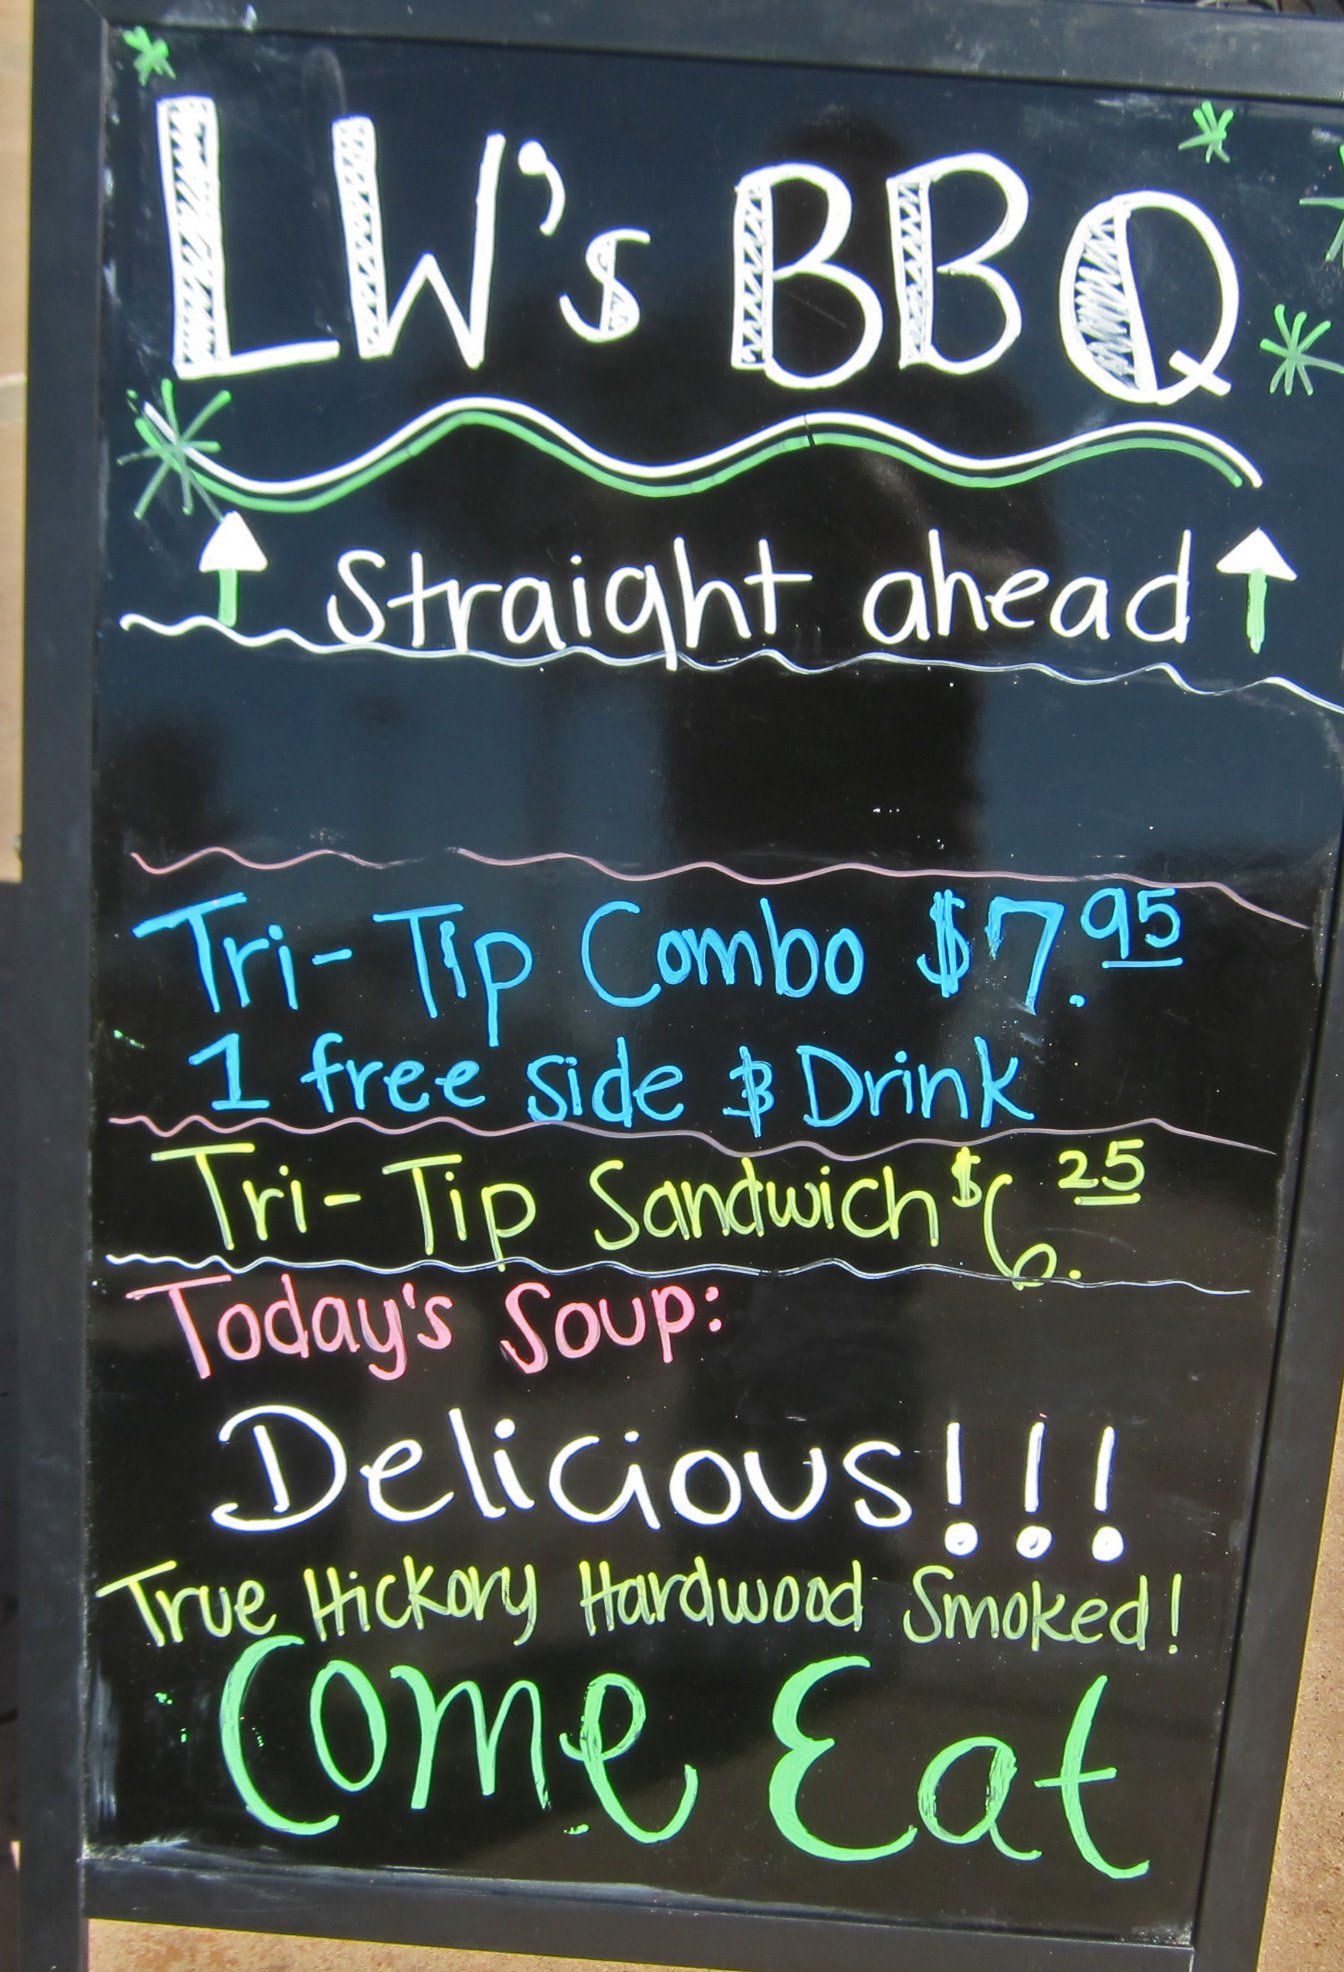 LW's BBQ
Straight ahead
Tri-Tip Combo $7.95
1 free side & Drink
Tri-Tip Sandwich $6.25
Today's Soup:
Delicious!!!
True Hickory Hardwood Smoked!
Come Eat